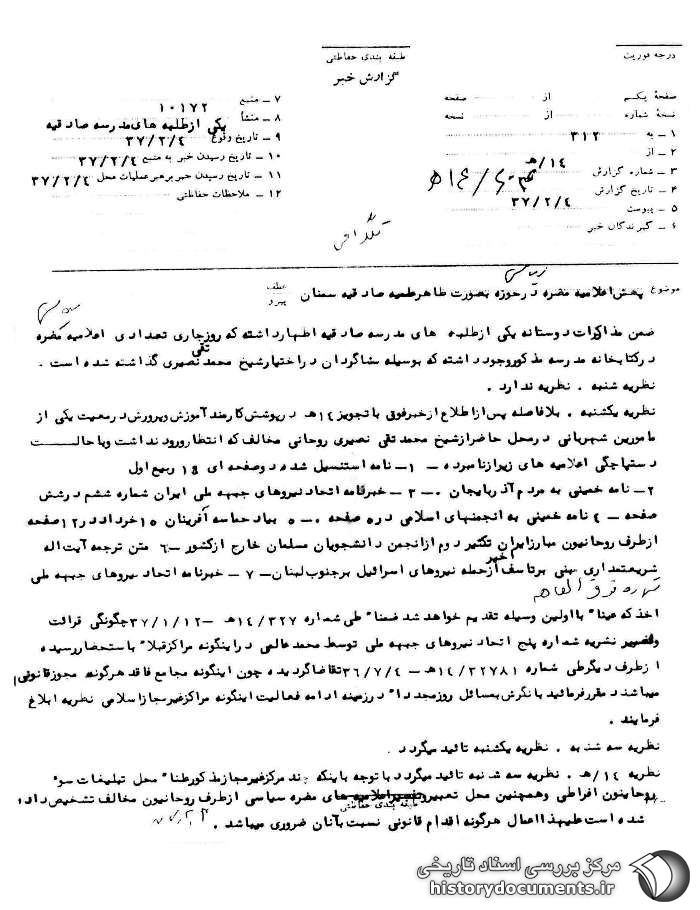 درجه فوریت
طبقه بندی حفاظتی
گزارش خبر
صفحهٔ یکم از صفحه
نسخهٔ شماره از نسخه
۱ ـ به ۳۱۲
۲ ـ از
۳ ـ شماره گزارش ۱۴/هـ
۴ ـ تاریخ گزارش ۳۷/۲/۴
۵ ـ پیوست
۶ ـ گیرندگان خبر
۷ ـ منبع ۱۰۱۷۲
۸ ـ منشأ یکی ازطلبه های مدرسه صادقیه
۹ ـ تاریخ وقوع ۳۷/۲/۴
۱۰ ـ تاریخ رسیدن خبر به منبع ۳۷/۲/۴
۱۱ ـ تاریخ رسیدن خبر برهبر عملیات محل ۳۷/۲/۴
۱۲ ـ ملاحظات حفاظتی
تلگرافی
موضوع پخش اعلامیه مضره در حوزه بصورت ظاهر علمیه صادقیه سمنان
عطف
پیرو
ضمن مذاکرات دوستانه یکی ازطلبه های مدرسه صادقیه اظهارداشته که روزجاری تعدادی اعلامیه مضره
درکتابخانه مدرسه مذکوروجود داشته که بوسیله شاگردان دراختیارشیخ محمدتقی نصیری گذاشته شده است .
نظریه شنبه . نظریه ندارد .
نظریه یکشنبه . بلافاصله پس ازاطلاع ازخبرفوق باتجویز۱۴هـ درپوشش کارمند آموزش وپرورش درمعیت یکی از
مامورین شهربانی درمحل حاضرازشیخ محمدتقی نصیری روحانی مخالف که انتظارورود نداشت وباحالت
دستپاچگی اعلامیه های زیرازنامبرده ـ ۱ـ نامه استنسیل شده دوصفحه ای ۱۸ ربیع اول
۲ـ نامه خمینی به مردم آذربایجان .ـ ۳ ـ خبرنامه اتحاد نیروهای جبهه ملی ایران شماره ششم درشش
صفحه ـ ۴ نامه خمینی به انجمنهای اسلامی در۵ صفحه .ـ ۵ بیاد حماسه آفرینان ۱۵ خرداد در۱۲صفحه
ازطرف روحانیون مبارزایران تکثیر دوم ازانجمن دانشجویان مسلمان خارج ازکشور ـ۶ متن ترجمه آیت اله
شریعتمداری مبنی برتاسف ازحمله اخیر نیروهای اسرائیل برجنوب لبنان ـ ۷ ـ خبرنامه اتحاد نیروهای جبهه ملی
شماره فوق العاده
اخذ که عینا" بااولین وسیله تقدیم خواهد شد ضمنا" طی شماره ۱۴/۳۲۷هـ ـ ۳۷/۱/۱۲ چگونگی قرائت
وتفسیر نشریه شماره پنج اتحاد نیروهای جبهه ملی توسط محمدعالمی دراینگونه مراکزقبلا" باستحضاررسیده
ازطرف دیگرطی شماره ۱۴/۳۲۷۸۱هـ ـ ۳۶/۷/۴ تقاضاگردیده چون اینگونه مجامع فاقد هرگونه مجوزقانونی
میباشند مقررفرمائید بانگرش بمسائل روزمجددا" درزمینه ادامه فعالیت اینگونه مراکزغیرمجازاسلامی نظریه ابلاغ
فرمایند .
نظریه سه شنبه . نظریه یکشنبه تائید میگردد .
نظریه ۱۴/هـ . نظریه سه شنبه تائید میگردد باتوجه باینکه چند مرکزغیرمجازمذکورظنا" محل تبلیغات سو"
روحانیون افراطی وهمچنین محل تعبیروتفسیراعلامیه های مضره سیاسی ازطرف روحانیون مخالف تشخیص داده
طبقه بندی حفاظتی
شده است علیهذا اعمال هرگونه اقدام قانونی نسبت بآنان ضروری میباشد .
مرکز بررسی اسناد تاریخی
historydocuments.ir